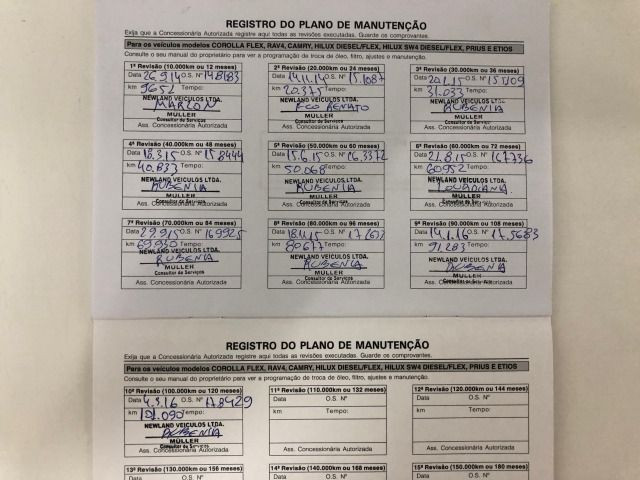 REGISTRO DO PLANO DE MANUTENÇÃO
Exija que a Concessionária Autorizada registre aqui todas as revisões executadas. Guarde os comprovantes.
Para os veículos modelos COROLLA FLEX, RAV4, CAMRY, HILUX DIESEL/FLEX, HILUX SW4 DIESEL/FLEX, PRIUS E ETIOS
Consulte o seu manual do proprietário para ver a programação de troca de óleo, filtro, ajustes e manutenção.
1ª Revisão (10.000km ou 12 meses)
Data 26.9.14 O.S. Nº 148183
km 9652 Tempo:
NEWLAND VEÍCULOS LTDA.
MARLON
MÜLLER
Consultor de Serviços
Ass. Concessionária Autorizada
2ª Revisão (20.000km ou 24 meses)
Data 14.11.14 O.S. Nº 15.1087
km 20.375 Tempo:
NEWLAND VEÍCULOS LTDA.
RENATO
MÜLLER
Consultor de Serviços
Ass. Concessionária Autorizada
3ª Revisão (30.000km ou 36 meses)
Data 20.1.15 O.S. Nº
km 31.033 Tempo:
NEWLAND VEÍCULOS LTDA.
RUBENIA
MÜLLER
Consultor de Serviços
Ass. Concessionária Autorizada
4ª Revisão (40.000km ou 48 meses)
Data 18.3.15 O.S. Nº 15.8444
km 40.833 Tempo:
NEWLAND VEÍCULOS LTDA.
RUBENIA
MÜLLER
Consultor de Serviços
Ass. Concessionária Autorizada
5ª Revisão (50.000km ou 60 meses)
Data 15.6.15 O.S. Nº 16.3372
km 50.068 Tempo:
NEWLAND VEÍCULOS LTDA.
RUBENIA
MÜLLER
Consultor de Serviços
Ass. Concessionária Autorizada
6ª Revisão (60.000km ou 72 meses)
Data 21.8.15 O.S. Nº 167736
km 60952 Tempo:
NEWLAND VEÍCULOS LTDA.
MÜLLER
Consultor de Serviços
Ass. Concessionária Autorizada
7ª Revisão (70.000km ou 84 meses)
Data 29.9.15 O.S. Nº 169925
km 69930 Tempo:
NEWLAND VEÍCULOS LTDA.
RUBENIA
MÜLLER
Consultor de Serviços
Ass. Concessionária Autorizada
8ª Revisão (80.000km ou 96 meses)
Data 18.11.15 O.S. Nº
km 80677 Tempo:
NEWLAND VEÍCULOS LTDA.
RUBENIA
MÜLLER
Consultor de Serviços
Ass. Concessionária Autorizada
9ª Revisão (90.000km ou 108 meses)
Data 14.1.16 O.S. Nº 17.5683
km 91.283 Tempo:
NEWLAND VEÍCULOS LTDA.
RUBENIA
MÜLLER
Consultor de Serviços
Ass. Concessionária Autorizada
REGISTRO DO PLANO DE MANUTENÇÃO
Exija que a Concessionária Autorizada registre aqui todas as revisões executadas. Guarde os comprovantes.
Para os veículos modelos COROLLA FLEX, RAV4, CAMRY, HILUX DIESEL/FLEX, HILUX SW4 DIESEL/FLEX, PRIUS E ETIOS
Consulte o seu manual do proprietário para ver a programação de troca de óleo, filtro, ajustes e manutenção.
10ª Revisão (100.000km ou 120 meses)
Data 4.3.16 O.S. Nº 178429
km 101.090 Tempo:
NEWLAND VEÍCULOS LTDA.
RUBENIA
MÜLLER
Consultor de Serviços
Ass. Concessionária Autorizada
11ª Revisão (110.000km ou 132 meses)
Data O.S. Nº
km Tempo:
Ass. Concessionária Autorizada
12ª Revisão (120.000km ou 144 meses)
Data O.S. Nº
km Tempo:
Ass. Concessionária Autorizada
13ª Revisão (130.000km ou 156 meses)
Data O.S. Nº
14ª Revisão (140.000km ou 168 meses)
Data O.S. Nº
15ª Revisão (150.000km ou 180 meses)
Data O.S. Nº